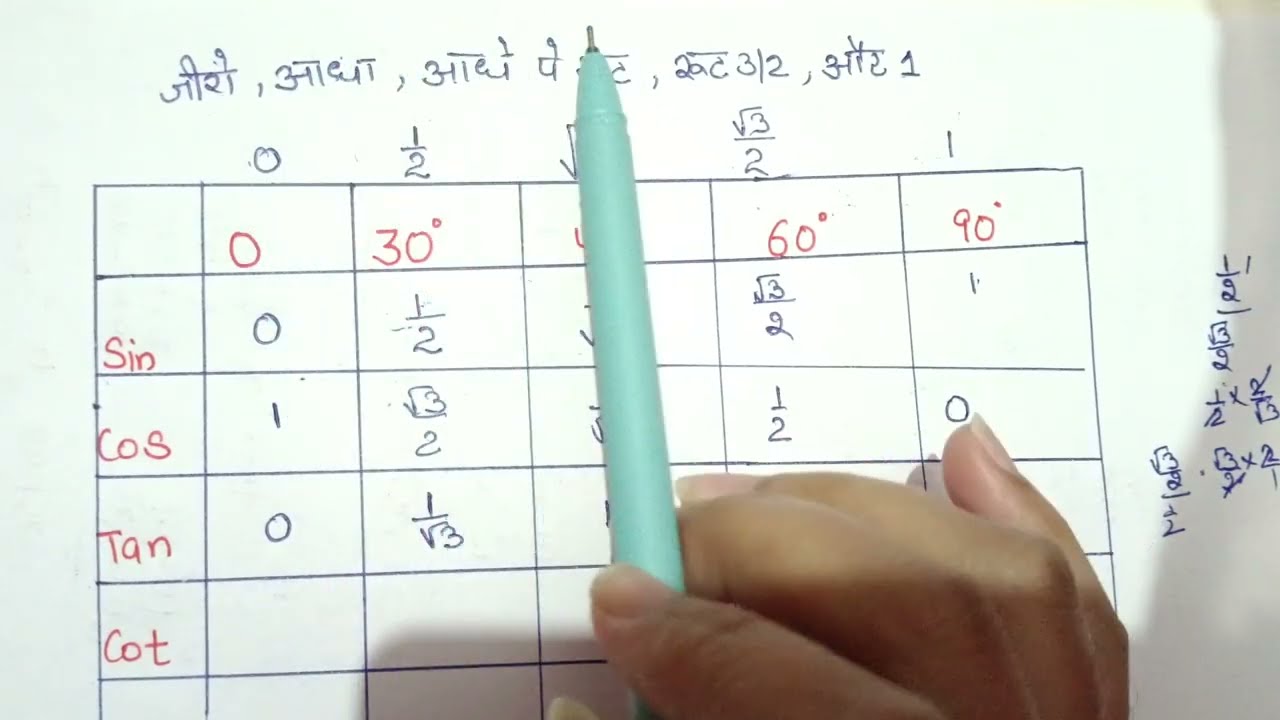 जीरो, आधा, आधे पे रूट, रूट 3/2, और 1
0 1/2 √3/2 1
0 30° 60° 90°
Sin 0 1/2 √3/2 1
Cos 1 √3/2 1/2 0
Tan 0 1/√3
Cot